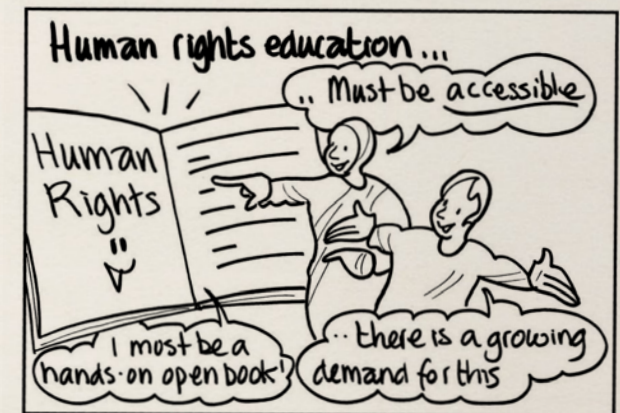 Human rights education...
.. Must be accessible
Human
Rights
I must be a
hands-on open book!
... there is a growing
demand for this